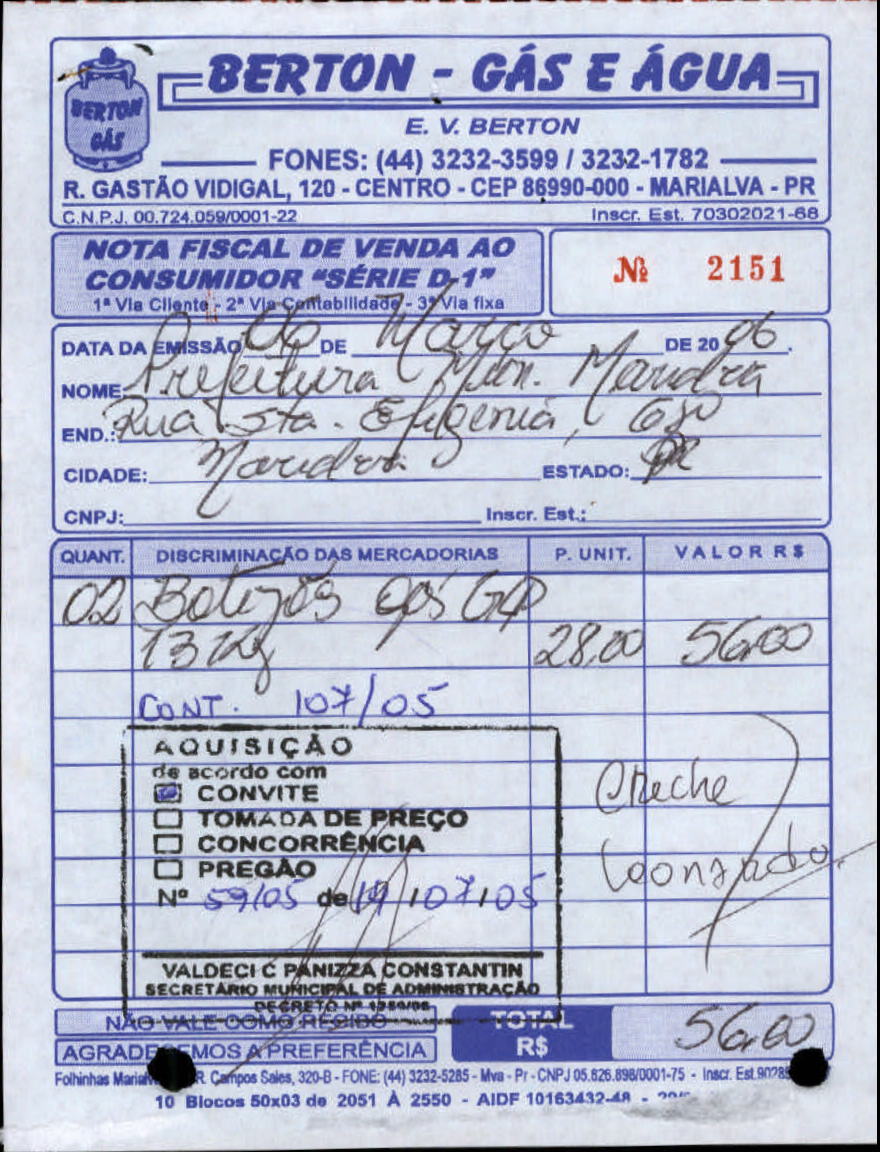 BERTON GÁS
BERTON - GÁS E ÁGUA
E. V. BERTON
FONES: (44) 3232-3599 / 3232-1782
R. GASTÃO VIDIGAL, 120 - CENTRO - CEP 86990-000 - MARIALVA - PR
C.N.P.J. 00.724.059/0001-22 Inscr. Est. 70302021-68
NOTA FISCAL DE VENDA AO
CONSUMIDOR "SÉRIE D-1"
1ª Via Cliente - 2ª Via Contabilidade - 3ª Via fixa
Nº 2151
DATA DA EMISSÃO 06 DE Março DE 20 06.
NOME: Prefeitura Mun.
END.: Rua Sta. Efigenia,
CIDADE: ESTADO: PR
CNPJ: Inscr. Est.:
QUANT. DISCRIMINAÇÃO DAS MERCADORIAS P. UNIT. VALOR R$
02 Botijões gás
13 Kg 28,00 56,00
CONT. 107/05
AQUISIÇÃO
de acordo com
CONVITE
TOMADA DE PREÇO
CONCORRÊNCIA
PREGÃO
Nº 59/05 de 19/07/05
Creche
Leonardo.
VALDECI C PANIZZA CONSTANTIN
SECRETÁRIO MUNICIPAL DE ADMINISTRAÇÃO
DECRETO Nº
NÃO VALE COMO RECIBO
AGRADECEMOS A PREFERÊNCIA
TOTAL R$ 56,00
Folhinhas R. Campos Sales, 320-B - FONE: (44) 3232-5285 - Mva - Pr - CNPJ 05.826.898/0001-75 - Inscr. Est.
10 Blocos 50x03 de 2051 À 2550 - AIDF 10163432-48 -